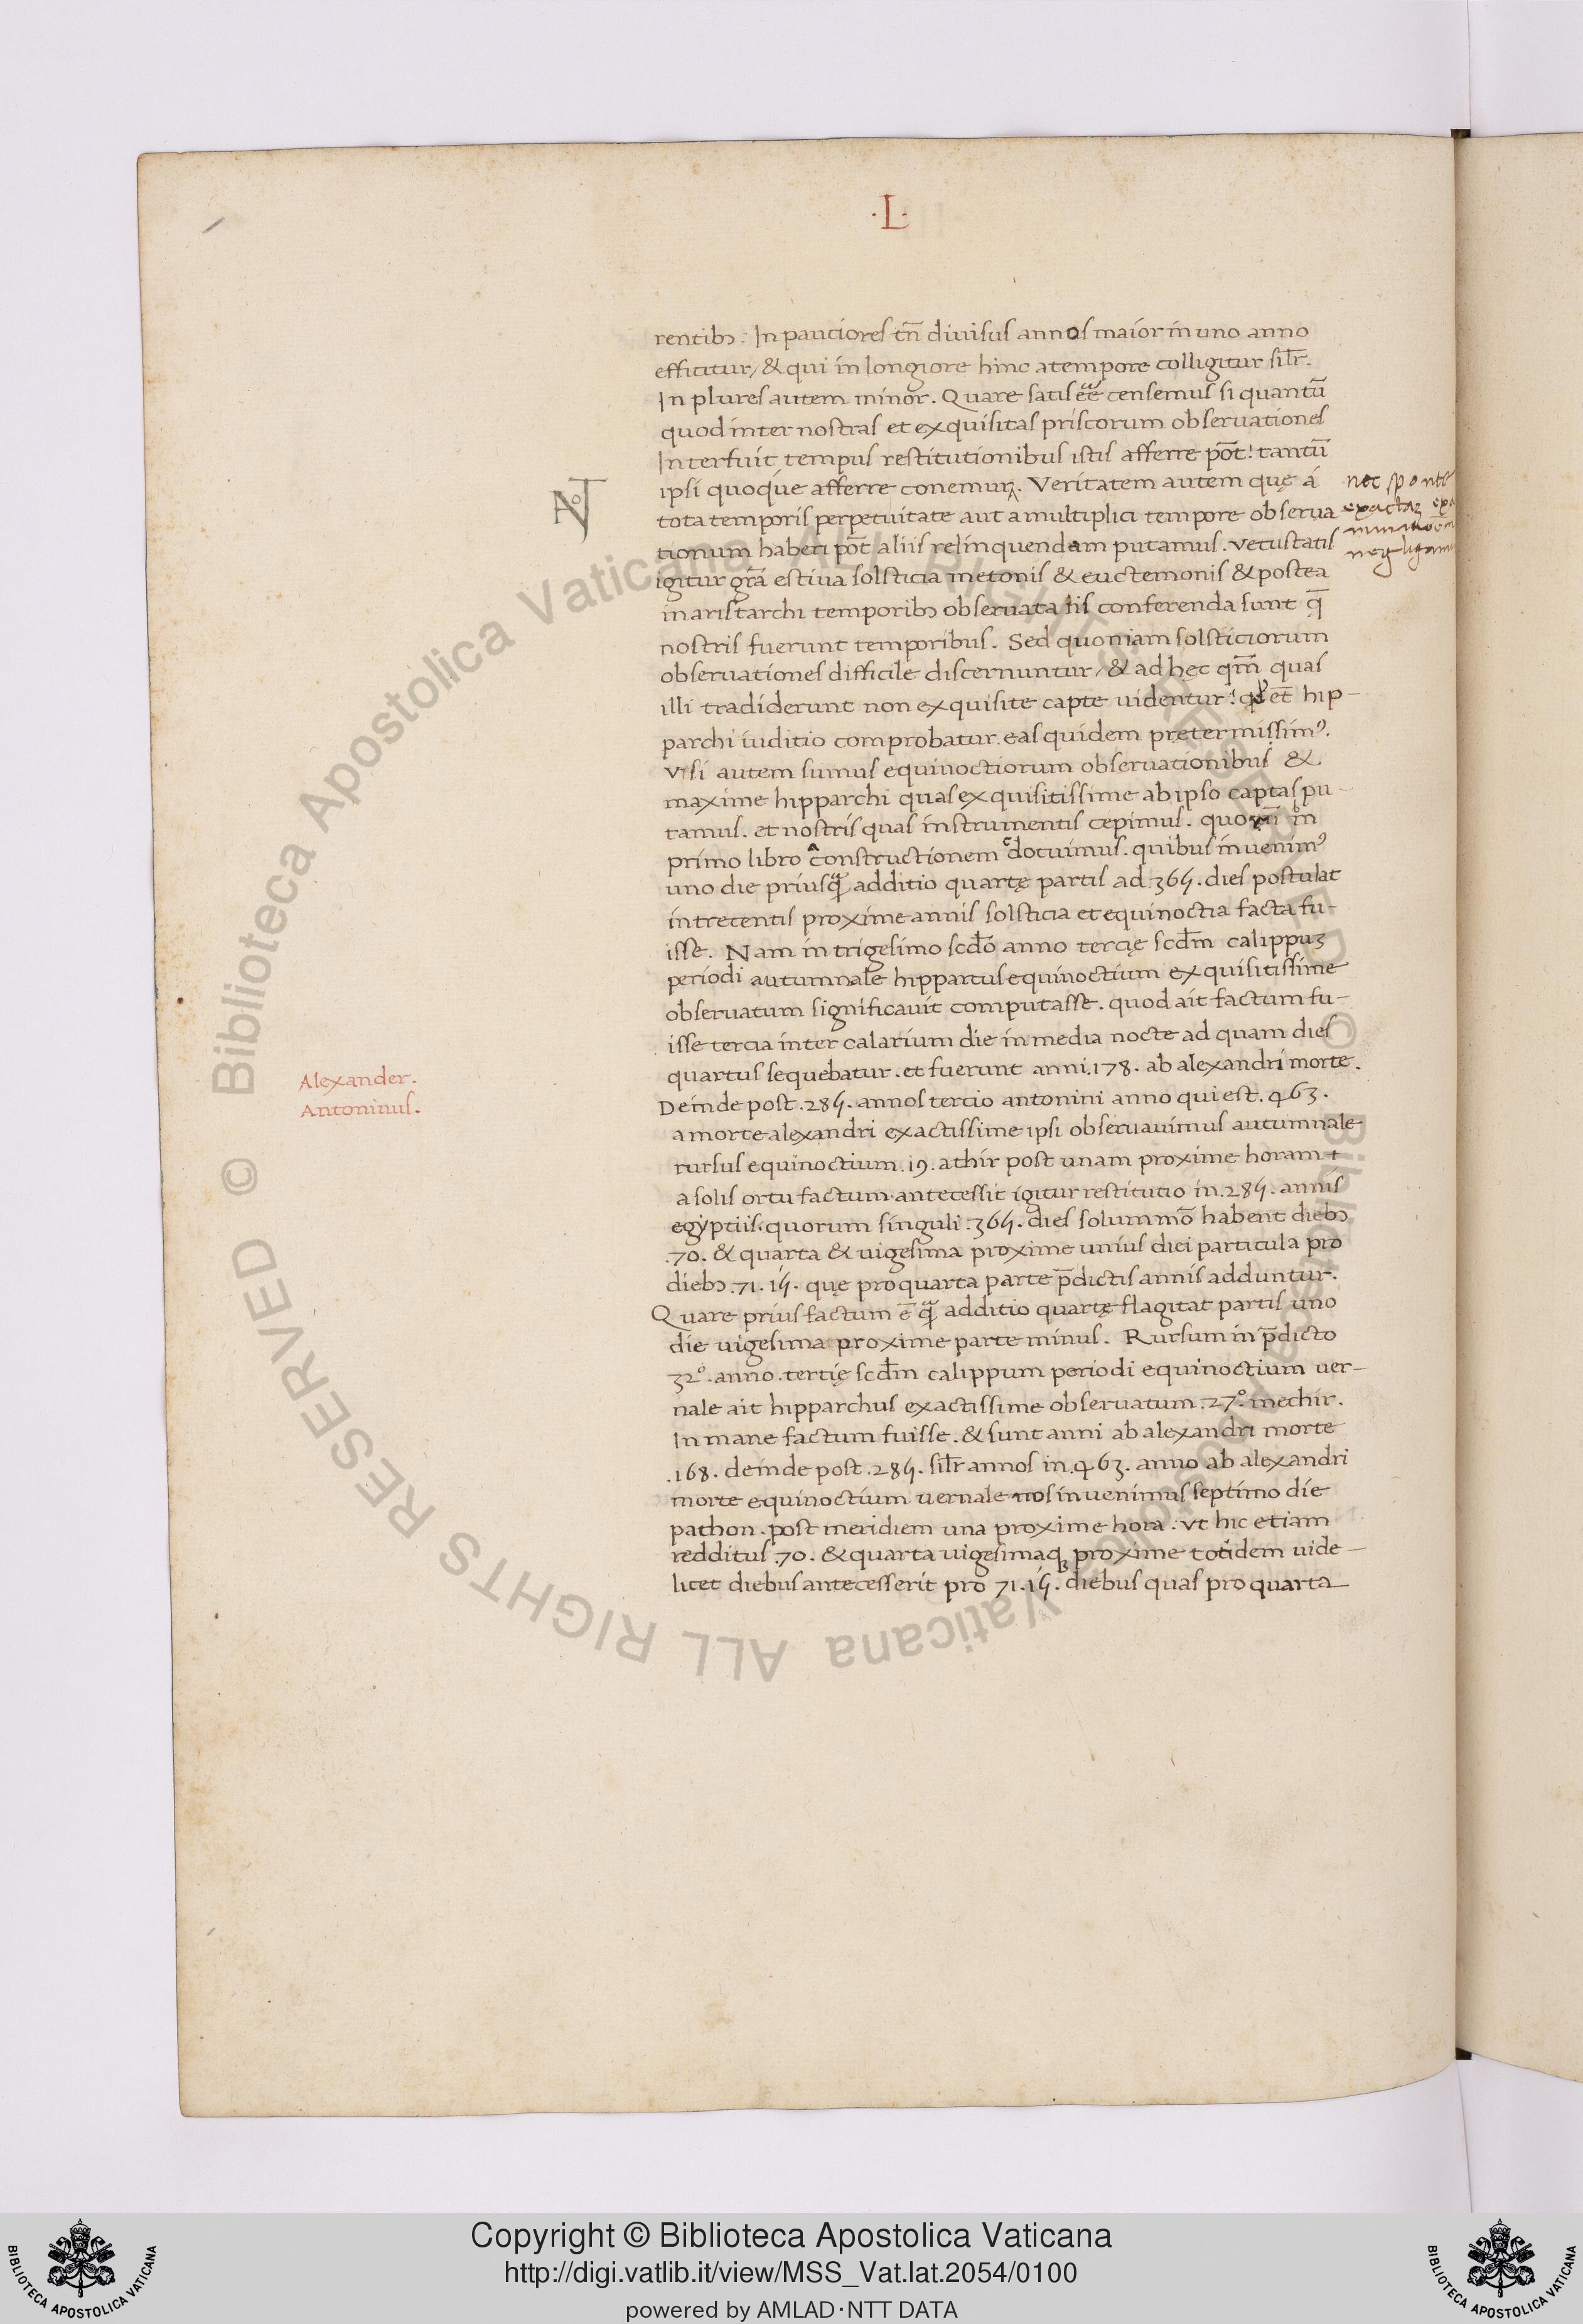 ·L·
rentibꝫ. In pauciores tñ diuisus annos maior in uno anno
efficitur, & qui in longiore hinc a tempore colligitur sil̃r.
In plures autem minor. Quare satis eẽ censemus si quantũ
quod inter nostras et exquisitas priscorum obseruationes
Interfuit tempus restitutionibus istis afferre põt! tantũ
ipsi quoque afferre conemur. Veritatem autem quę á
tota temporis perpetuitate aut a multiplici tempore obserua
tionum haberi põt aliis relinquendam putamus. vetustatis
igitur grã estiua solsticia metonis & euctemonis & postea
in aristarchi temporibꝫ obseruata his conferenda sunt q̃
nostris fuerunt temporibus. Sed quoniam solsticiorum
obseruationes difficile discernuntur, & ad hęc qm̃ quas
illi tradiderunt non exquisite capte uidentur! qđ et̃ hip-
parchi iuditio comprobatur. eas quidem pretermissimꝰ.
vsi autem sumus equinoctiorum obseruationibus &
maxime hipparchi quas exquisitissime ab ipso captas pu-
tamus. et nostris quas instrumentis cepimus. in
primo libro constructionem docuimus. quibus inuenimꝰ
uno die priusq̃ additio quartę partis ad .365. dies postulat
in trecentis proxime annis solsticia et equinoctia facta fu-
isse. Nam in trigesimo scđo anno tercię scđm calippuꝫ
periodi autumnale hipparcus equinoctium exquisitissime
obseruatum significauit computasse. quod ait factum fu-
isse tercia inter calarium die in media nocte ad quam dies
quartus sequebatur. et fuerunt anni .178. ab alexandri morte.
Deinde post .285. annos tercio antonini anno qui est .463.
a morte alexandri exactissime ipsi obseruauimus autumnale
rursus equinoctium .19. athir post unam proxime horam
a solis ortu factum. antecessit igitur restitutio in .285. annis
egyptiis. quorum singuli .365. dies solummõ habent diebꝫ
.70. & quarta & uigesima proxime unius diei particula pro
diebꝫ .71.15. quę pro quarta parte p̃dictis annis adduntur.
Quare prius factum ẽ q̃ additio quartę flagitat partis uno
die uigesima proxime parte minus. Rursum in p̃dicto
32º. anno. tertię scđm calippum periodi equinoctium uer-
nale ait hipparchus exactissime obseruatum .27º. mechir.
In mane factum fuisse. & sunt anni ab alexandri morte
.168. deinde post .285. sil̃r annos in .463. anno ab alexandri
morte equinoctium uernale nos inuenimus septimo die
pathon. post meridiem una proxime hora. vt hic etiam
redditus .70. & quarta uigesimaqꝫ proxime totidem uide-
licet diebus antecesserit pro 71.15. diebus quas pro quarta
nec sponte
exactaꝫ
Alexander.
Antoninus.
© Biblioteca Apostolica Vaticana ALL RIGHTS RESERVED © Biblioteca Apostolica Vaticana ALL RIGHTS RESERVED
BIBLIOTECA APOSTOLICA VATICANA
Copyright © Biblioteca Apostolica Vaticana
http://digi.vatlib.it/view/MSS_Vat.lat.2054/0100
powered by AMLAD·NTT DATA
BIBLIOTECA APOSTOLICA VATICANA